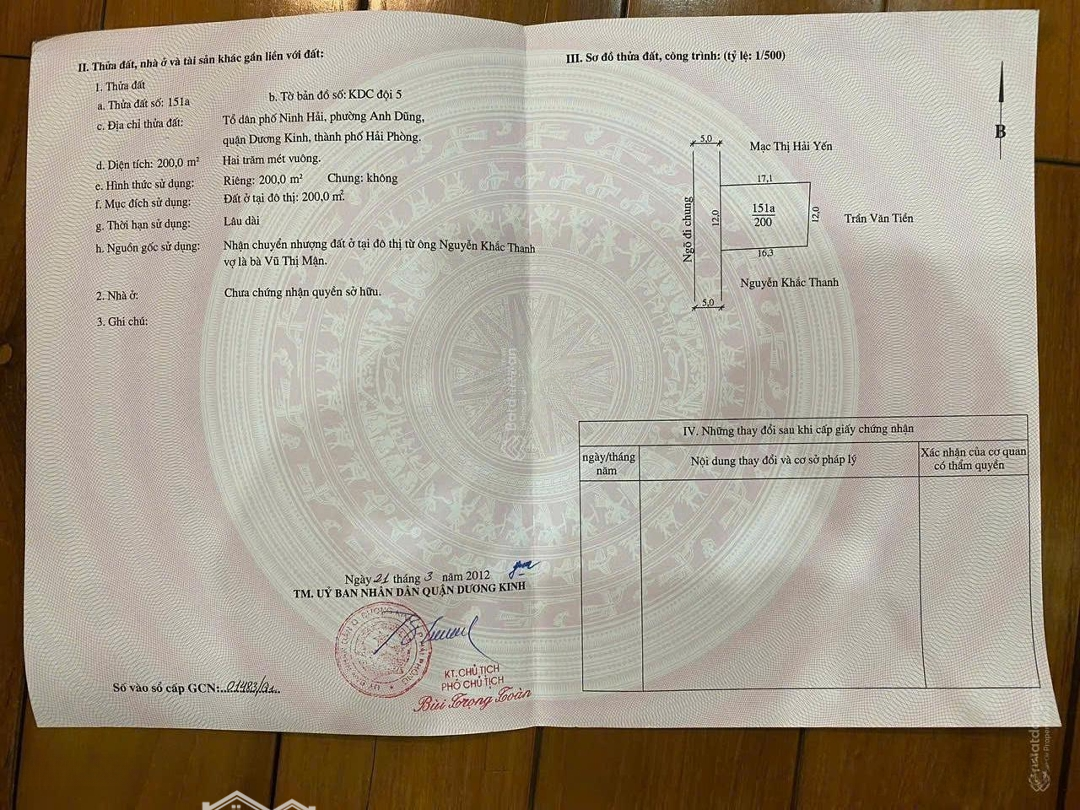 II. Thửa đất, nhà ở và tài sản khác gắn liền với đất:
1. Thửa đất
a. Thửa đất số: 151a
b. Tờ bản đồ số: KDC đội 5
c. Địa chỉ thửa đất: Tổ dân phố Ninh Hải, phường Anh Dũng,
quận Dương Kinh, thành phố Hải Phòng.
d. Diện tích: 200,0 m² Hai trăm mét vuông.
e. Hình thức sử dụng: Riêng: 200,0 m² Chung: không
f. Mục đích sử dụng: Đất ở tại đô thị: 200,0 m².
g. Thời hạn sử dụng: Lâu dài
h. Nguồn gốc sử dụng: Nhận chuyển nhượng đất ở tại đô thị từ ông Nguyễn Khắc Thanh
vợ là bà Vũ Thị Mận.
2. Nhà ở: Chưa chứng nhận quyền sở hữu.
3. Ghi chú:
Ngày 21 tháng 3 năm 2012
TM. UỶ BAN NHÂN DÂN QUẬN DƯƠNG KINH
KT. CHỦ TỊCH
PHÓ CHỦ TỊCH
Bùi Trọng Toàn
Số vào sổ cấp GCN:..01483/91..
III. Sơ đồ thửa đất, công trình: (tỷ lệ: 1/500)
B
5,0
Mạc Thị Hải Yến
17,1
Ngõ đi chung
12,0
151a
200
12,0
Trần Văn Tiền
16,3
Nguyễn Khắc Thanh
5,0
IV. Những thay đổi sau khi cấp giấy chứng nhận
ngày/tháng
năm
Nội dung thay đổi và cơ sở pháp lý
Xác nhận của cơ quan
có thẩm quyền
Batdongsan